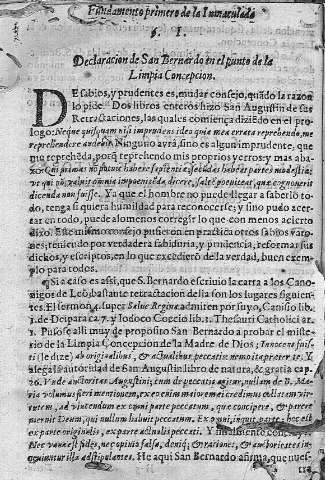 Fundamento primero de la Inmaculada
§. I.
Declaracion de San Bernardo en el punto de la
Limpia Concepcion.
DE sabios, y prudentes es, mudar consejo, quãdo la razon
lo pide. Dos libros enteros hizo San Augustin de sus
Retractaciones, las quales comença diziẽdo en el pro
logo: Neque quisquam nisi imprudens ideo quia mea errata reprehendo, me
reprehendere audebit. Ninguno avrá, sino es algun imprudente, que
me reprehẽda, porq̃ reprehendo mis proprios yerros; y mas aba-
xo: Qui primas nõ potuit habere sapientiæ, secũdas habeat partes modestiæ:
ut qui nõ valuit omnia impœnitẽda dicere, saltẽ pœniteat, quæ cognoverit
dicenda non fuisse. Ya que el hombre no puede llegar a saberlo to
do, tenga siquiera humildad para reconocerse; y sino pudo acer-
tar en todo, puede alomenos corregir lo que con menos acierto
dixo. Este mismo consejo pusieron en practica otros sabios varo-
nes, teniendo por verdadera sabiduria, y prudencia, reformar sus
dichos, y escriptos, en lo que excedieron de la verdad, buen exem
plo para todos.
Si a caso es assi, que S. Bernardo escrivio la carta a los Cano-
nigos de Leõ, bastante retractacion della son los lugares siguien-
tes. El sermon 4. super Salve Regina, admiten por suyo, Canisio lib.
1. de Deipara ca. 7. y Iodoco Coccio lib. 3. Thesauri Catholici ar.
Pusose alli muy de proposito San Bernardo a probar el miste-
rio de la Limpia Concepcion de la Madre de Dios; Innocens fuisti
(le dize) ab originalibus, & actualibus peccatis: nemo ita præter te. Y
alega la autoridad de San Augustin libro de natura, & gratia cap.
26. Vnde auctoritas Augustini; cum de peccatis agitur, nullam de B. Ma-
ria volumus fieri mentionem, ex eo enim maiorem ei credimus collatam vir
tutem, ad vincendum ex omni parte peccatum, quæ concipere, & parere
meruit Deum, qui nullum habuit peccatum. Ex omni, inquit, parte: hoc est
ex parte originalis, ex parte actualis peccati. Y finalmente concluye:
Nec vana est fides, nec opinio falsa, deniq; & rationes, & authoritates in-
veniuntur illa adstipulantes. He aqui San Bernardo afirma, que nues-